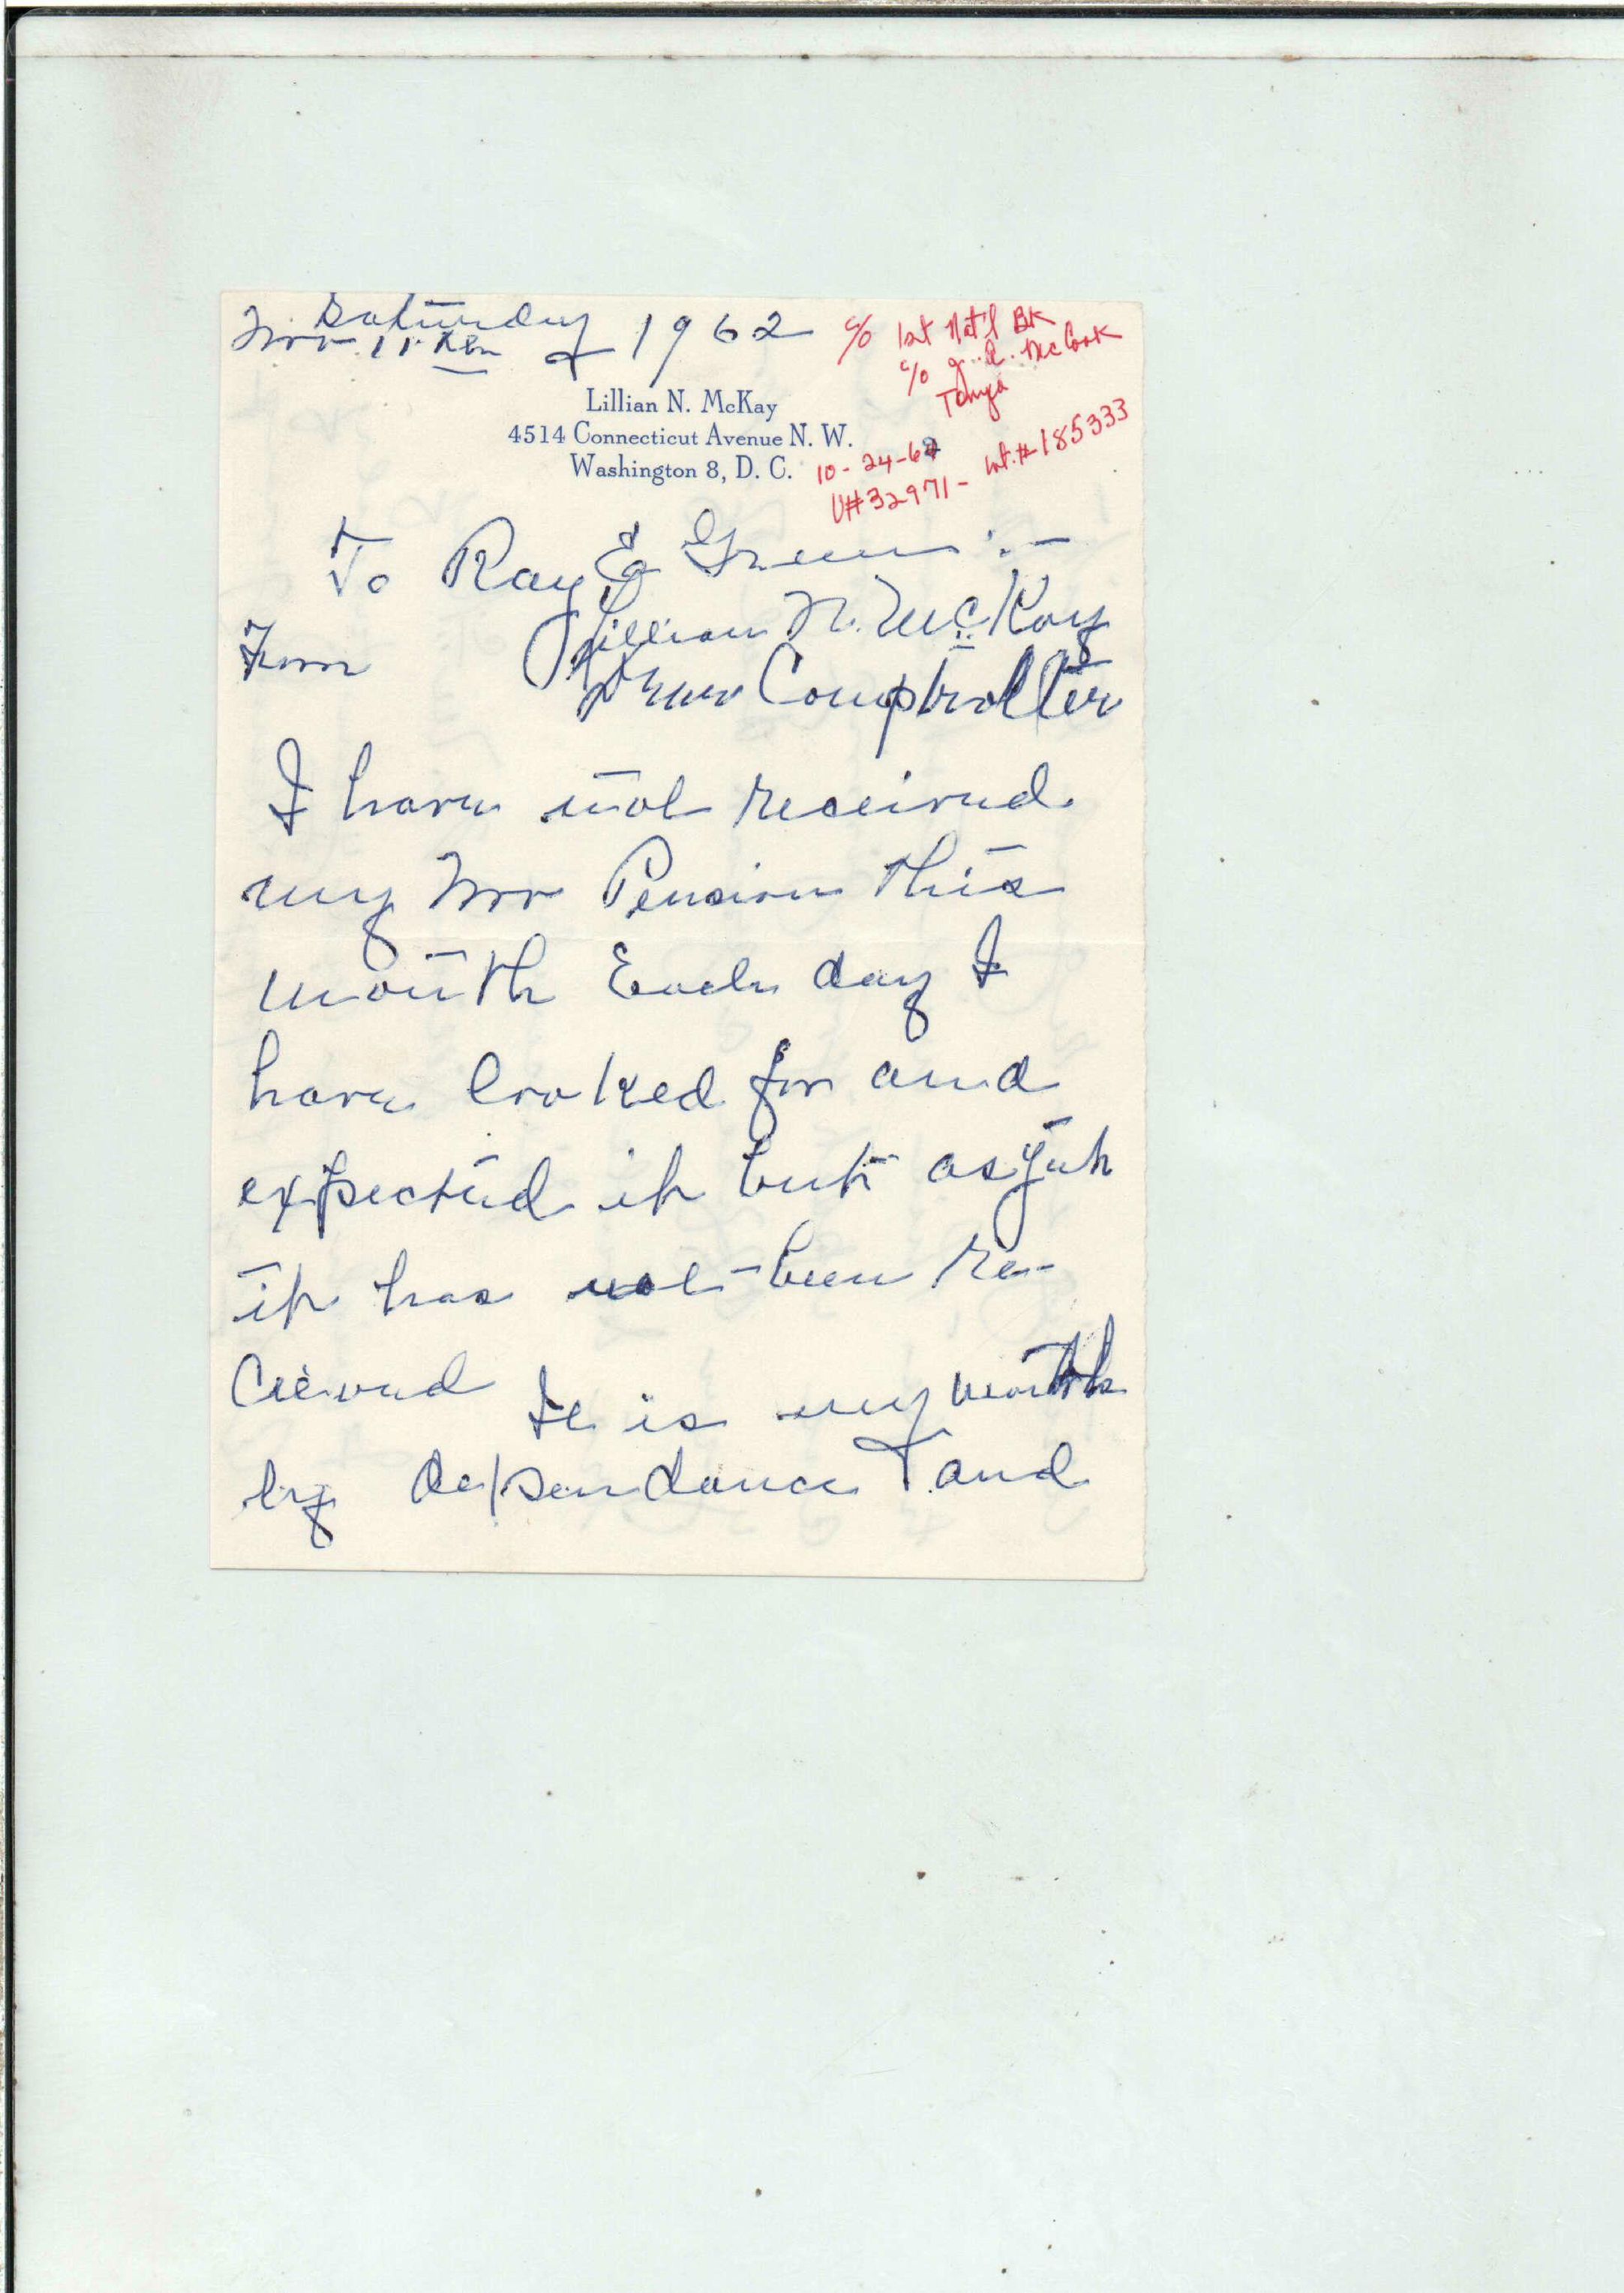 Saturday
Nov 1962
c/o 1st Nat'l Bk
c/o J. R. McCook
Tampa
Lillian N. McKay
4514 Connecticut Avenue N. W.
Washington 8, D. C.
10-24-62
V#32971- Wt.#185333
To Ray E Green :-
From Lillian N. McKay
Comptroller
I have not received
my Nov Pension this
month Each day I
have looked for and
expected it but as yet
it has not been re-
cieved It is my month
ly dependance and